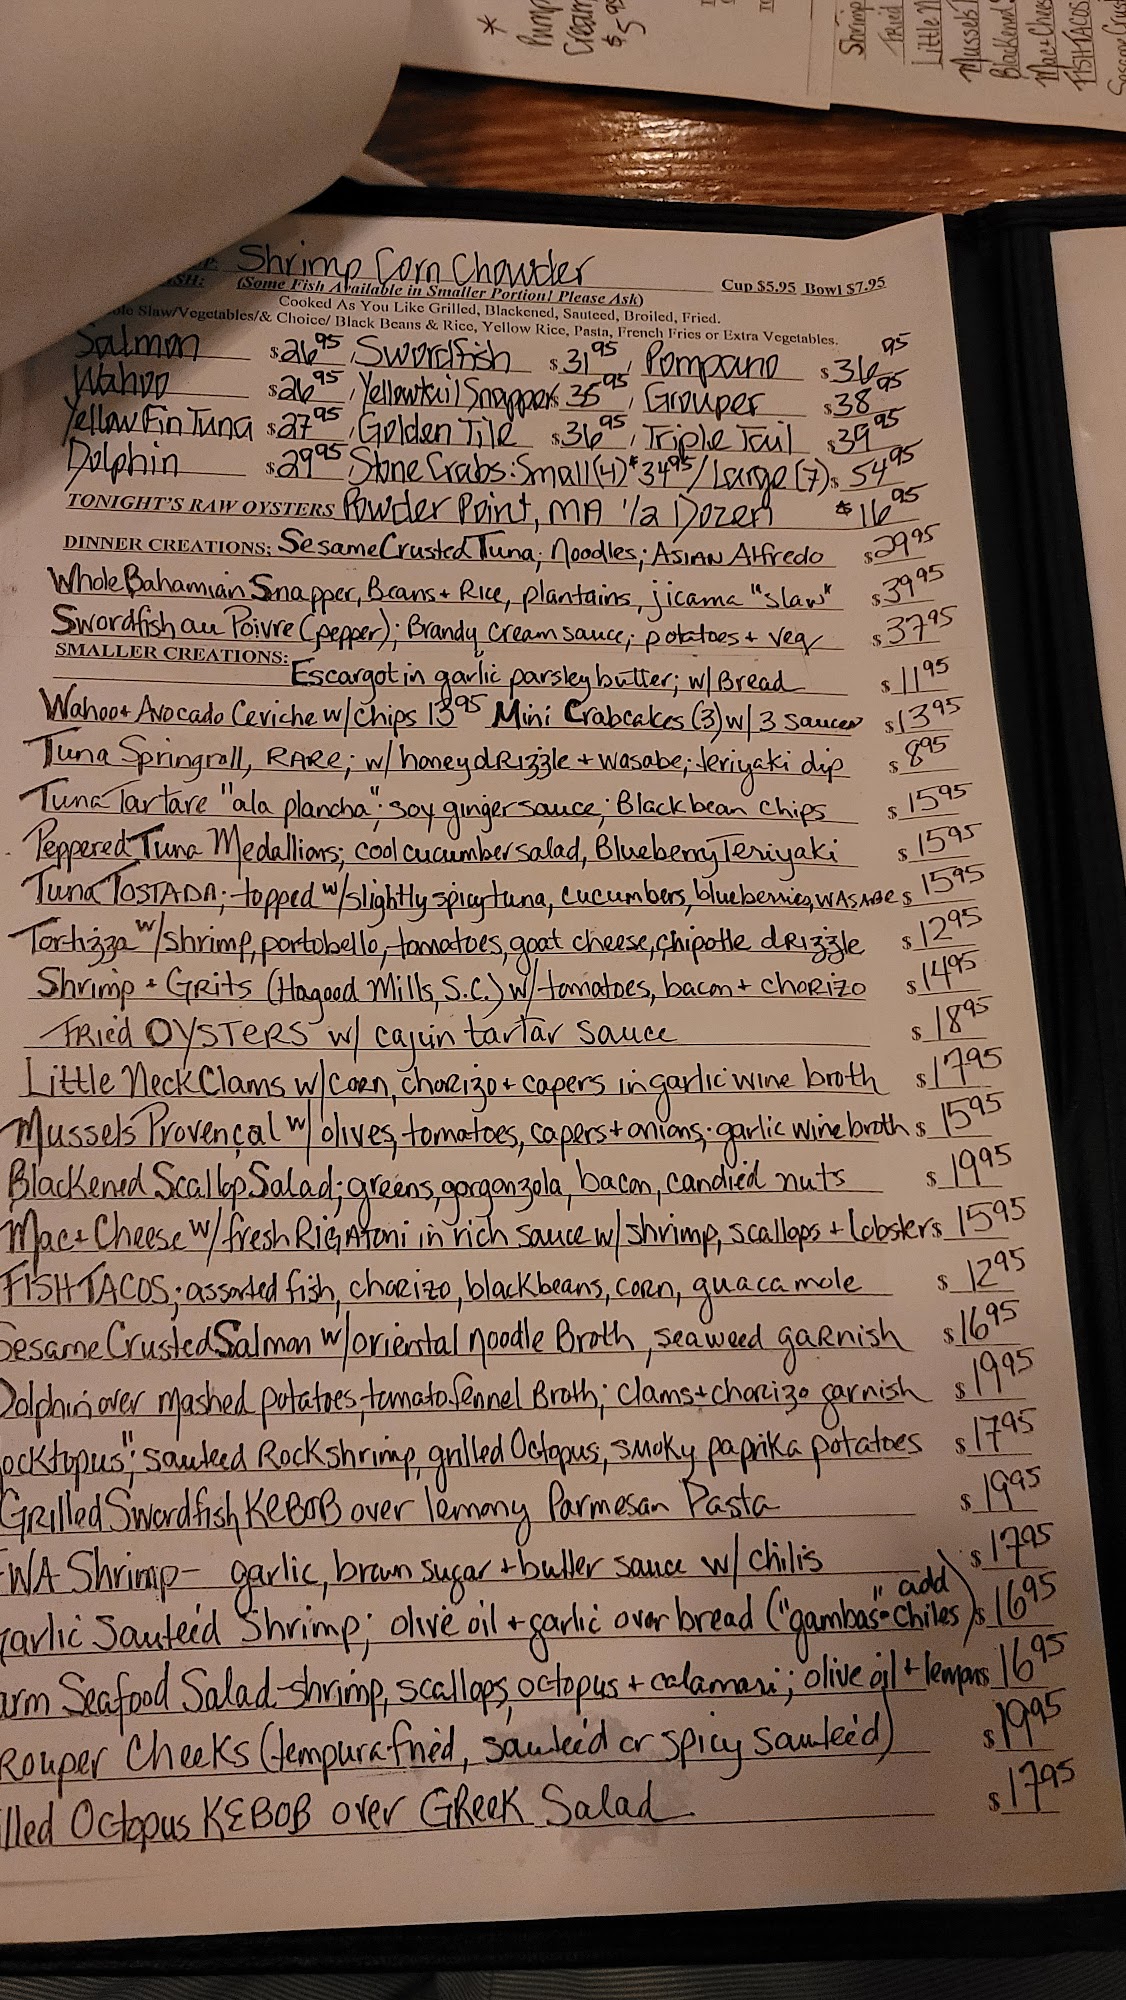 *
Cream
$5.95
Shrimp
Fried
Little N
Mussels
Blackened
Mac+Chee
FISH TACOS
Shrimp Corn Chowder Cup $5.95 Bowl $7.95
(Some Fish Available in Smaller Portion! Please Ask)
Cooked As You Like Grilled, Blackened, Sauteed, Broiled, Fried.
Slaw/Vegetables/& Choice/ Black Beans & Rice, Yellow Rice, Pasta, French Fries or Extra Vegetables.
Salmon $26.95, Swordfish $31.95, Pompano $36.95
Wahoo $26.95, Yellowtail Snapper $35.95, Grouper $38.95
Yellow Fin Tuna $27.95, Golden Tile $36.95, Triple Tail $39.95
Dolphin $29.95, Stone Crabs: Small (4) $34.95 / Large (7) $54.95
TONIGHT'S RAW OYSTERS Powder Point, MA 1/2 Dozen $16.95
DINNER CREATIONS: Sesame Crusted Tuna; Noodles; ASIAN Alfredo $29.95
Whole Bahamian Snapper, Beans + Rice, plantains, jicama "slaw" $39.95
Swordfish au Poivre (pepper); Brandy Cream sauce; potatoes + veg $37.95
SMALLER CREATIONS:
Escargot in garlic parsley butter; w/ Bread $11.95
Wahoo + Avocado Ceviche w/ chips 13.95 Mini Crabcakes (3) w/ 3 sauces $13.95
Tuna Springroll, RARE; w/ honey dRIzzle + wasabe; teriyaki dip $8.95
Tuna Tartare "ala plancha"; soy ginger sauce; Black bean chips $15.95
Peppered Tuna Medallions; cool cucumber salad, Blueberry Teriyaki $15.95
Tuna TOSTADA; topped w/ slightly spicy tuna, cucumbers, blueberries, WASABE $15.95
Tortizza w/ shrimp, portobello, tomatoes, goat cheese, chipotle dRIzzle $12.95
Shrimp + GRits (Hagood Mills, S.C.) w/ tomatoes, bacon + choRIZO $14.95
FRied OYSTERS w/ cajun tartar sauce $18.95
Little Neck Clams w/ corn, chorizo + capers in garlic wine broth $17.95
Mussels Provençal w/ olives, tomatoes, capers + onions; garlic wine broth $15.95
Blackened Scallop Salad; greens, gorgonzola, bacon, candied nuts $19.95
Mac + Cheese w/ fresh RIgAToni in rich sauce w/ shrimp, scallops + lobster $15.95
FISH TACOS; assorted fish, chorizo, blackbeans, corn, guacamole $12.95
Sesame Crusted Salmon w/ oriental noodle Broth, seaweed gaRnish $16.95
Dolphin over mashed potatoes, tomato.fennel Broth; clams + chorizo garnish $19.95
ocktopus"; sauteed Rock shrimp, grilled Octopus, smoky paprika potatoes $17.95
GRilled Swordfish KEBOB over lemony Parmesan Pasta $19.95
WA Shrimp - garlic, brown sugar + butter sauce w/ chilis $17.95
garlic Sauteéd Shrimp; olive oil + garlic over bread ("gambas" = add chiles) $16.95
arm Seafood Salad - shrimp, scallops, octopus + calamari; olive oil + lemons 16.95
Rouper Cheeks (tempura fried, sauteéd or spicy sauteéd) $19.95
lled Octopus KEBOB over GReek Salad $17.95